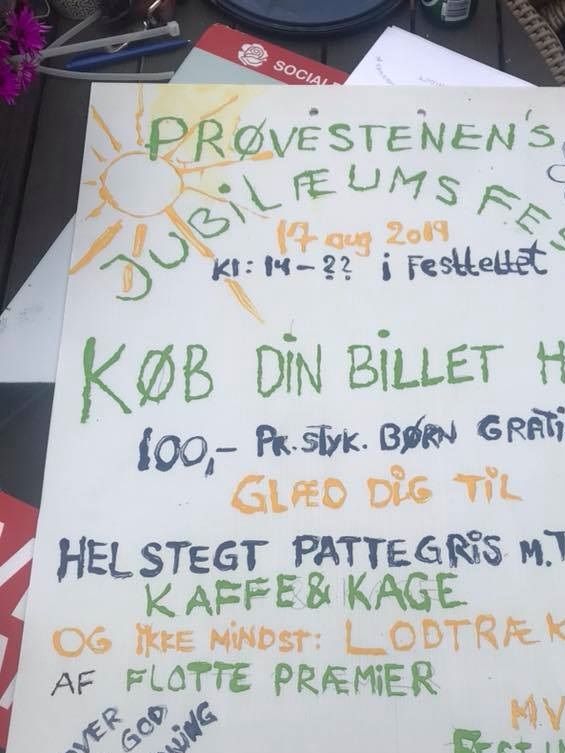 SOCIAL
PRØVESTENEN'S
JUBILÆUMSFES
17 aug 2019
Kl: 14 - ?? i Festteltet
KØB DIN BILLET H
100,- Pr. styk. BØRN GRATI
GLÆD DIG TIL
HELSTEGT PATTEGRIS M.T
KAFFE & KAGE
OG IKKE MINDST: LODTRÆK
AF FLOTTE PRÆMIER
OVER GOD
NING
M.V
FEST